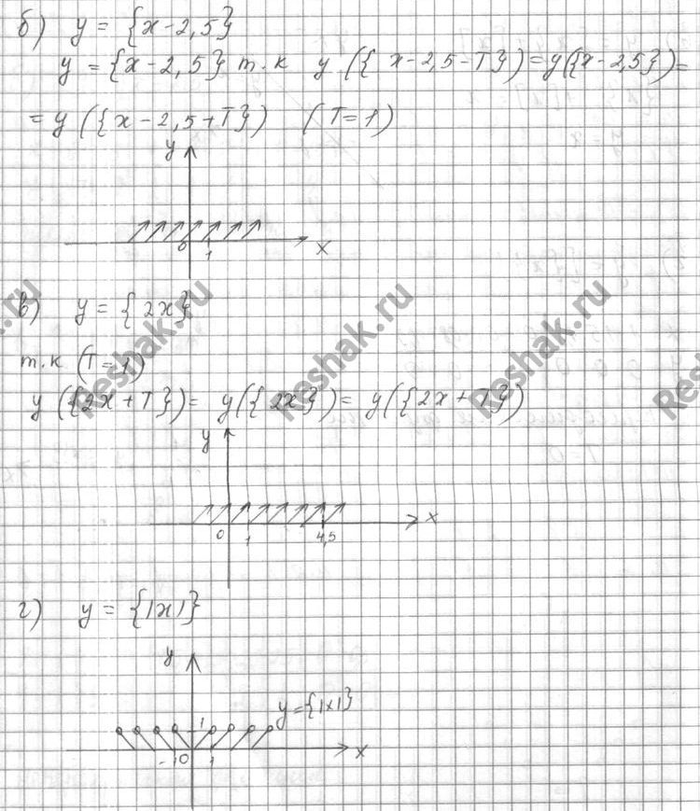 б) y = {x-2,5}
y = {x-2,5} т.к y ({ x-2,5-T}) = y({x-2,5}) =
= y ({x-2,5+T}) (T=1)
y
0 1 x
в) y = {2x}
т.к (T=1)
y ({2x+T}) = y({2x}) = y({2x+T})
y
0 1 4,5 x
г) y = {|x|}
y
1 y={|x|}
-1 0 1 x
Reshak.ru
Reshak.ru
Reshak.ru